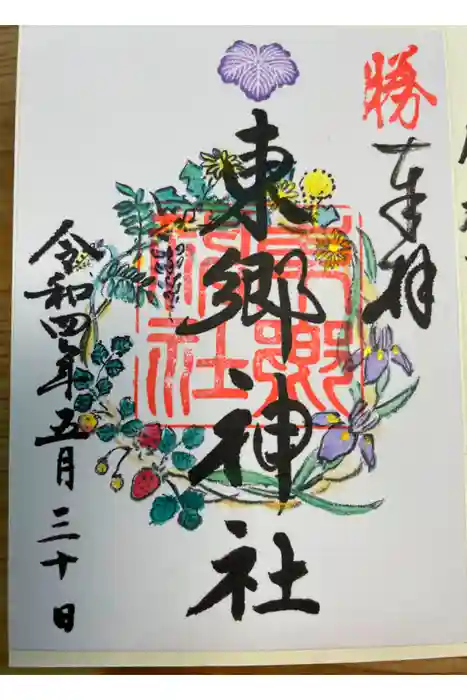 勝
奉拝
東郷神社
東郷神社
令和四年五月三十日